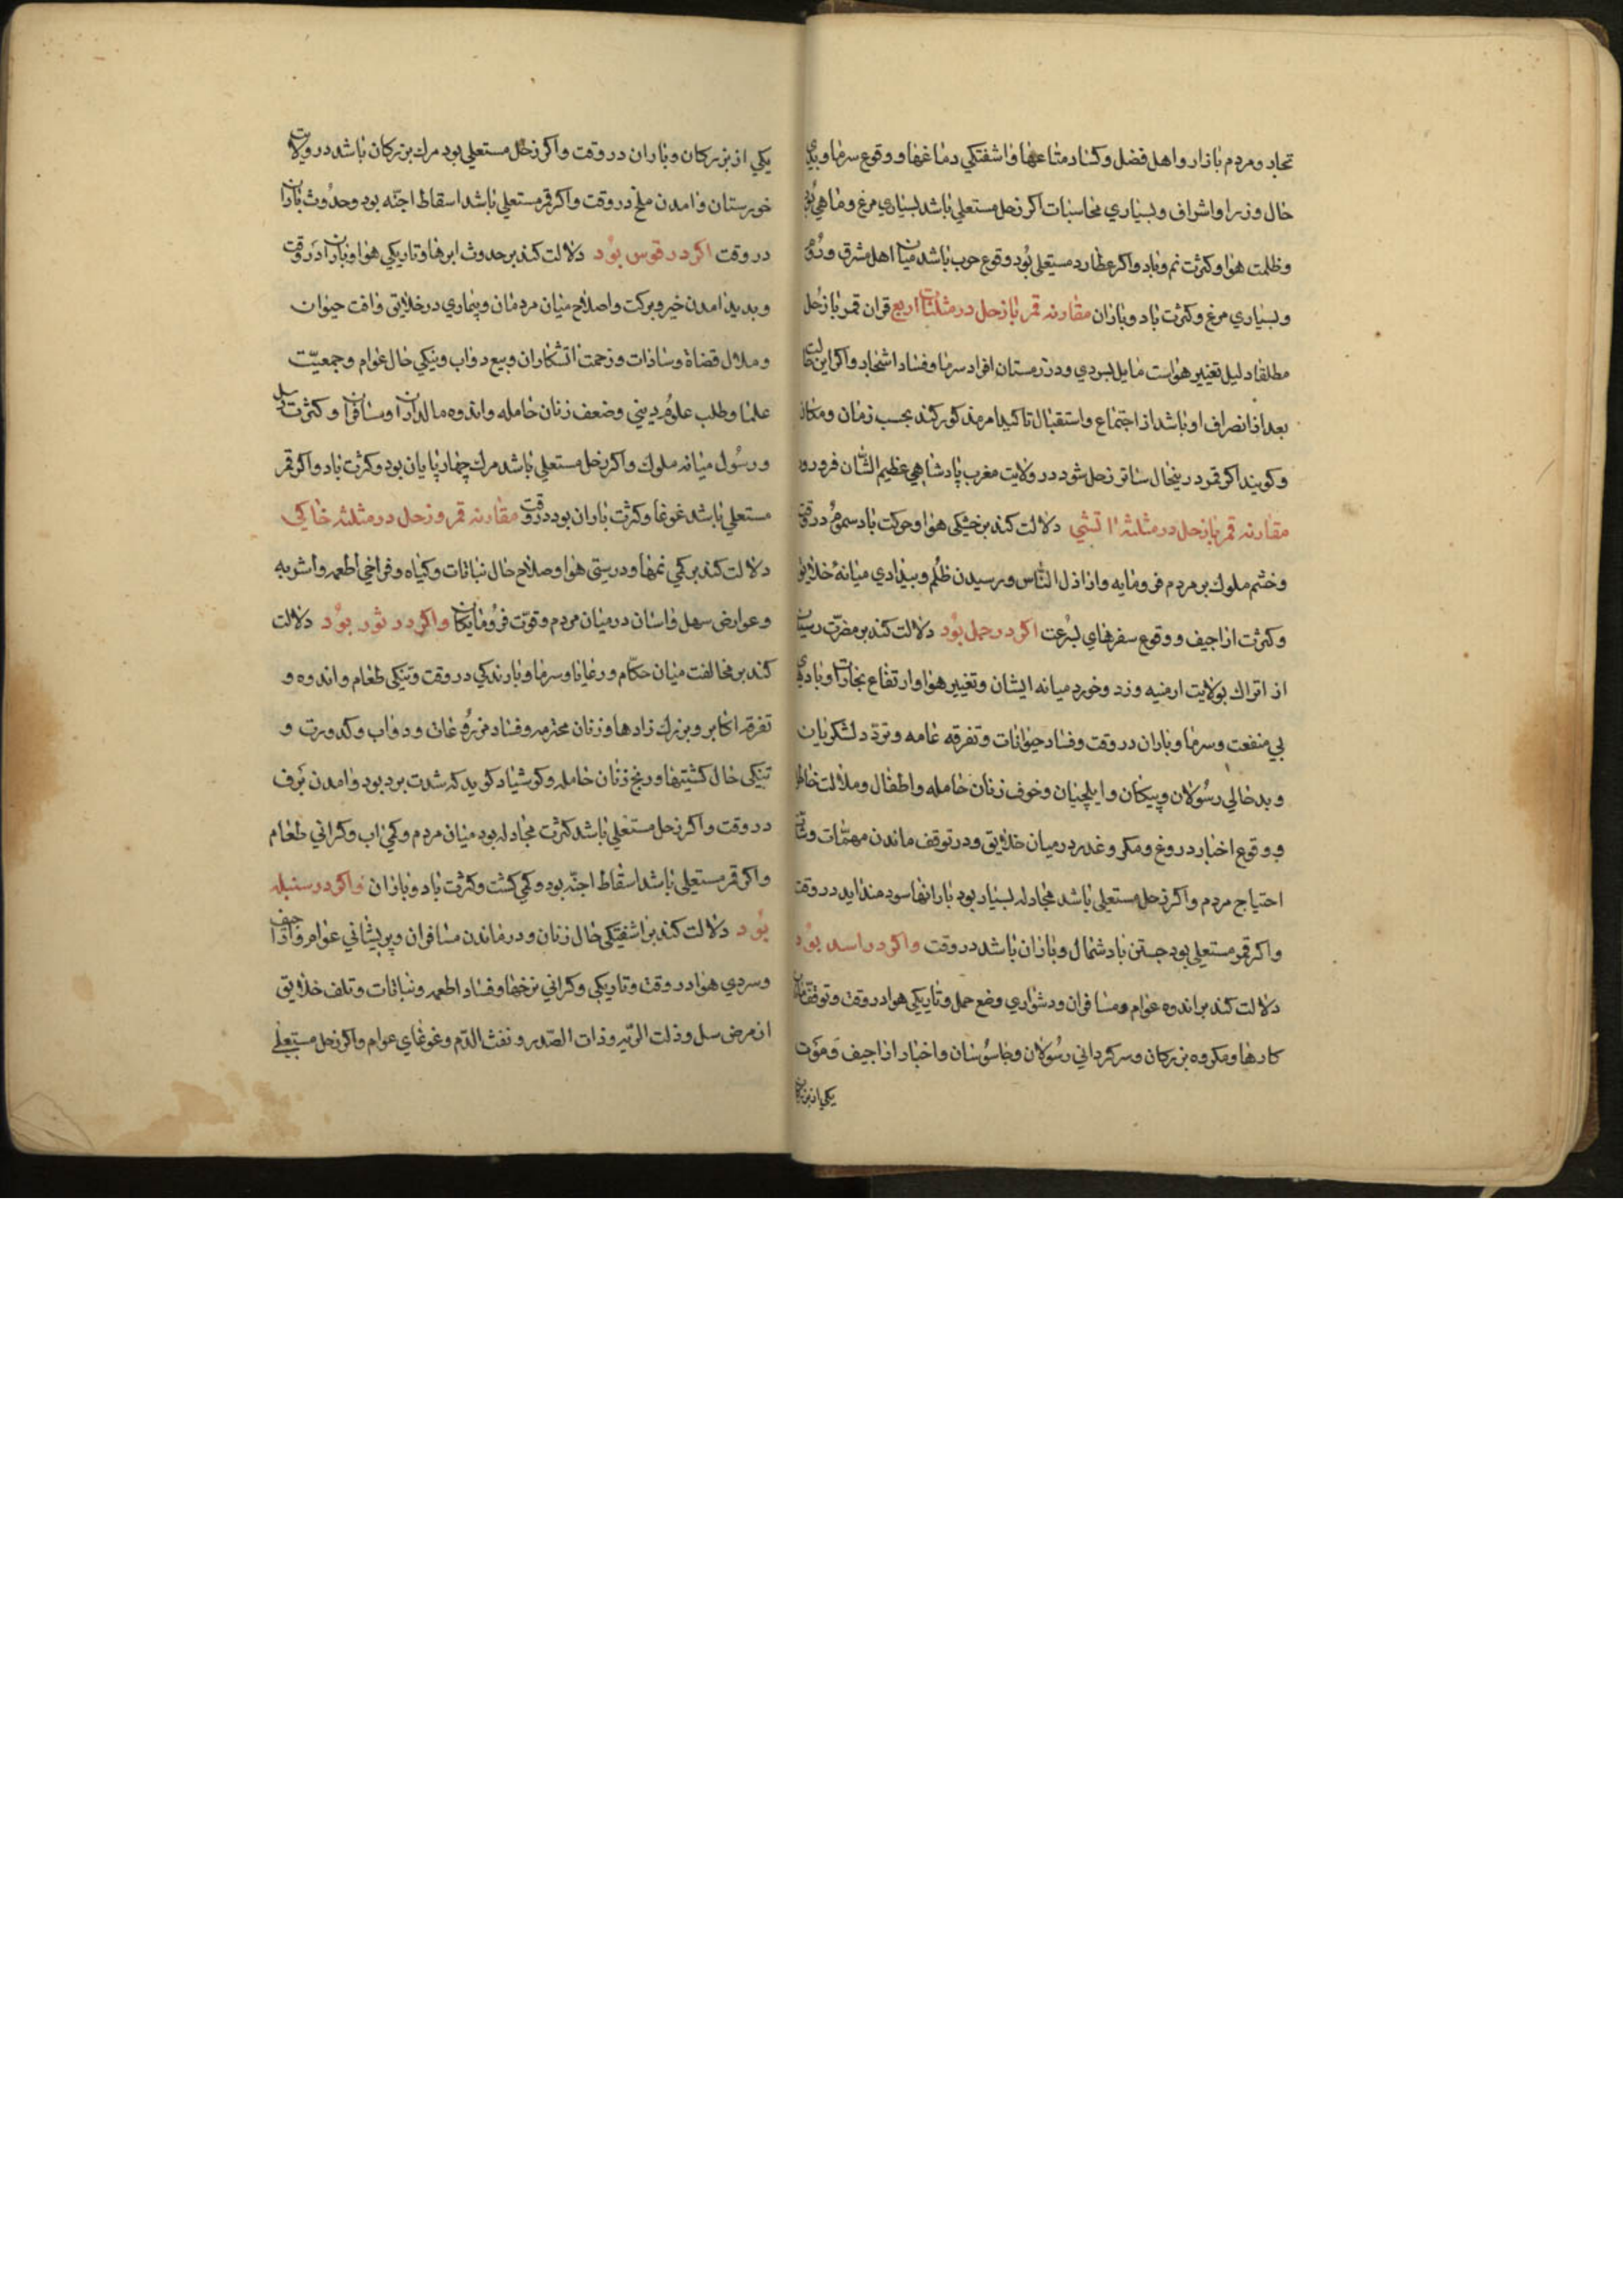 تجار و مردم بازار و اهل فضل و کساد متاعها و اشفتکی دماغها و وقوع سرما و بدی
حال وزرا و اشراف و بسیاری محاسبات اکر زحل مستعلی باشد بسیاری مرغ و ماهی بود
و ظلمت هوا و کثرت نم و باد و اکر عطارد مستعلی بود وقوع حرب باشد میان اهل مشرق و روم
و بسیاری مرغ و کثرت باد و باران مقارنه قمر با زحل در مثلثات اربع قران قمر با زحل
مطلقا دلیل تغییر هواست مایل بسردی و در زمستان افراد سرما و فساد اشجار و اکر این حالت
بعد از انصراف او باشد از اجتماع و استقبال تاکید امر مذکور کند بحسب زمان و مکان
و کویند اکر قمر در ینحال ساتر زحل شود در ولایت مغرب پادشاهی عظیم الشان فرو رود
مقارنه قمر با زحل در مثلثه اتشی دلالت کند بر خشکی هوا و حرکت باد سموم در وقت
و خشم ملوک بر مردم فرومایه و اراذل الناس و رسیدن ظلم و بیدادی میانه خلایق
و کثرت اراجیف و وقوع سفرهای بسرعت اکر در حمل بود دلالت کند بر مضرت رسیدن
از اتراک بولایت ارمنیه و زد و خورد میانه ایشان و تغییر هوا و ارتفاع بخارات و بادهای
بی منفعت و سرما و باران در وقت و فساد حیوانات و تفرقه عامه و تردد لشکریان
و بد حالی رسولان و پیکان و ایلچیان و خوف زنان حامله و اطفال و ملالت خاطر
و وقوع اخبار دروغ و مکر و غدر در میان خلایق و در توقف ماندن مهمات و
احتیاج مردم و اکر زحل مستعلی باشد مجادله بسیار بود بارانها سودمند اید در وقت
و اکر قمر مستعلی بود جستن باد شمال و باران باشد در وقت و اکر در اسد بود
دلالت کند بر اندوه عوام و مسافران و دشواری وضع حمل و تاریکی هوا در وقت و توقف
کارها و مکروه بزرکان و سرکردانی رسولان و جاسوسان و اخبار اراجیف و موت
یکی از بزرکان
یکی از بزرکان و باران در وقت و اکر زحل مستعلی بود مرک بزرکان باشد در ولایت
خورستان و امدن ملخ در وقت و اکر قمر مستعلی باشد اسقاط اجنه بود و حدوث باران
در وقت اکر در قوس بود دلالت کند بر حدوث ابرها و تاریکی هوا و باران در وقت
و بدید امدن خیر و برکت و اصلاح میان مردمان و بیماری در خلایق و افت حیوان
و ملال قضاة و سادات و زحمت اتشکاران و بیع دواب و نیکی حال عوام و جمعیت
علما و طلب علوم دینی و ضعف زنان حامله و اندوه مالداران و مسافران و کثرت رسل
و رسول میانه ملوک و اکر زحل مستعلی باشد مرک چهارپایان بود و کثرت باد و اکر قمر
مستعلی باشد غوغا و کثرت باران بود در وقت مقارنه قمر و زحل در مثلثه خاکی
دلالت کند بر کمی نمها و درستی هوا و صلاح حال نباتات و کیاه و فراخی اطعمه و اشربه
و عوارض سهل و اسان در میان مردم و قوت فرومایکان و اکر در ثور بود دلالت
کند بر مخالفت میان حکام و رعایا و سرما و بارندکی در وقت و تنکی طعام و اندوه و
تفرقه اکابر و بزرک زادها و زنان محترمه و فساد مزروعات و دواب و کدورت و
تنکی حال کشتیها و رنج زنان حامله و کوشیار کوید که شدت برد بود و امدن برف
در وقت و اکر زحل مستعلی باشد کثرت مجادله بود میان مردم و کمی اب و کرانی طعام
و اکر قمر مستعلی باشد اسقاط اجنه بود و کمی کشت و کثرت باد و باران و اکر در سنبله
بود دلالت کند بر اشفتکی حال زنان و در ماندن مسافران و پریشانی عوام و اراجیف
و سردی هوا در وقت و تاریکی و کرانی نرخها و فساد اطعمه و نباتات و تلف خلایق
از مرض سل و ذات الریه و ذات الصدر و نفث الدم و غوغای عوام و اکر زحل مستعلی